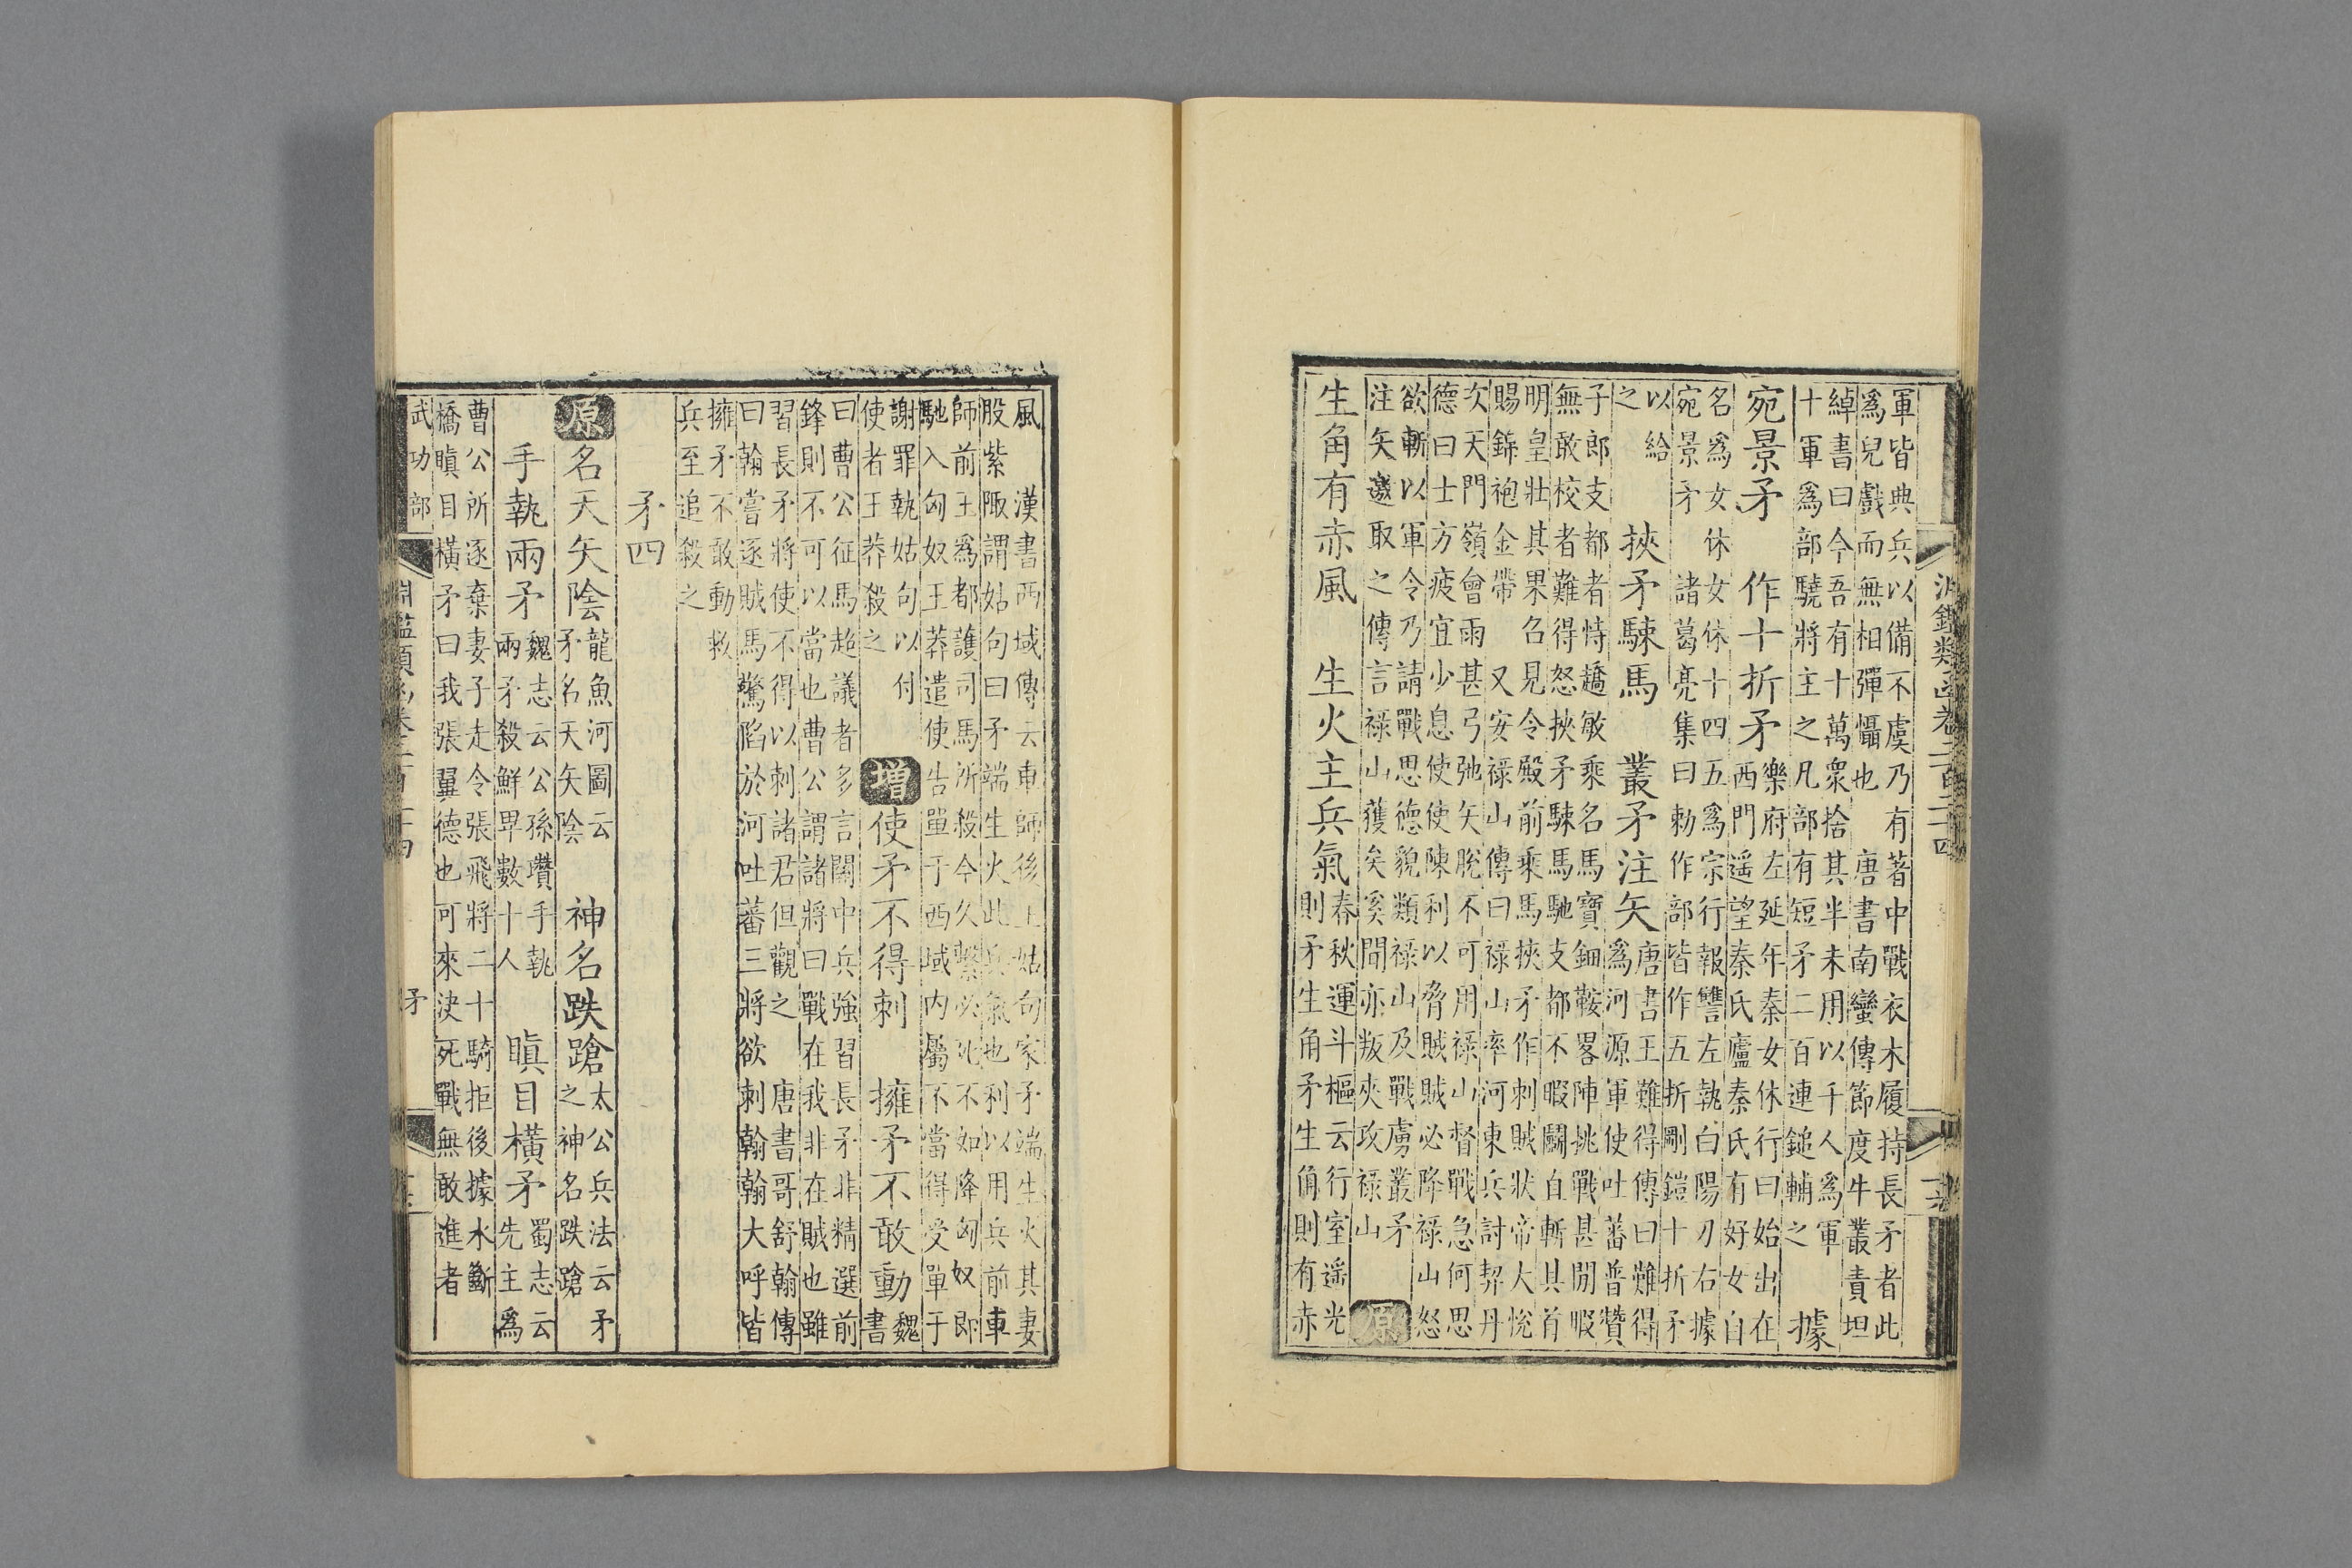 淵鑑類函卷二百二十四
軍皆典兵以備不虞乃有著中戰衣木履持長矛者此
爲兒戲而無相彈懾也　唐書南蠻傳節度牛叢責坦
綽書曰今吾有十萬衆捨其半未用以千人爲軍
十軍爲部驍將主之凡部有短矛二百連鎚輔之　據
宛景矛　作十折矛　樂府左延年秦女休行曰始出在
西門遥望秦氏廬秦氏有好女自
名爲女休女休十四五爲宗行報讐左執白陽刃右據
宛景矛　諸葛亮集曰勅作部皆作五折剛鎧十折矛
以給
之　挾矛駷馬　叢矛注矢　唐書王難得傳曰難得
爲河源軍使吐蕃普贊
子郎支都者恃趫敏乘名馬寶鈿鞍畧陣挑戰甚閒暇
無敢校者難得怒挾矛駷馬馳支都不暇鬭自斬其首
明皇壯其果名見令殿前乘馬挾矛作刺賊狀帝大悅
賜錦袍金帶　又安祿山傳曰祿山率河東兵討契丹
次天門嶺會雨甚弓弛矢脫不可用祿山督戰急何思
德曰士方疲宜少息使使陳利以脅賊賊必降祿山怒
欲斬以軍令乃請戰思德貌類祿山及戰虜叢矛
注矢邀取之傳言祿山獲矣奚間亦叛夾攻祿山　原
生角有赤風　生火主兵氣　春秋運斗樞云行室遥光
則矛生角矛生角則有赤
風　漢書西域傳云車師後王姑句家矛端生火其妻
股紫陬謂姑句曰矛端生火此兵氣也利以用兵前車
師前王爲都護司馬所殺今久繫必死不如降匈奴即
馳入匈奴王莽遣使告單于西域内屬不當得受單于
謝罪執姑句以付
使者王莽殺之　增　使矛不得刺　擁矛不敢動　魏書
曰曹公征馬超議者多言關中兵強習長矛非精選前
鋒則不可以當也曹公謂諸將曰戰在我非在賊也雖
習長矛將使不得以刺諸君但觀之　唐書哥舒翰傳
曰翰嘗逐賊馬驚陷於河吐蕃三將欲刺翰翰大呼皆
擁矛不敢動救
兵至追殺之
矛四
原　名天矢陰　龍魚河圖云
矛名天矢陰　神名跌蹌　太公兵法云矛
之神名跌蹌
手執兩矛　魏志云公孫瓚手執
兩矛殺鮮卑數十人　瞋目橫矛　蜀志云
先主爲
曹公所逐棄妻子走令張飛將二十騎拒後據水斷
橋瞋目橫矛曰我張翼德也可來決死戰無敢進者
武功部　淵鑑類函卷二百二十四　矛